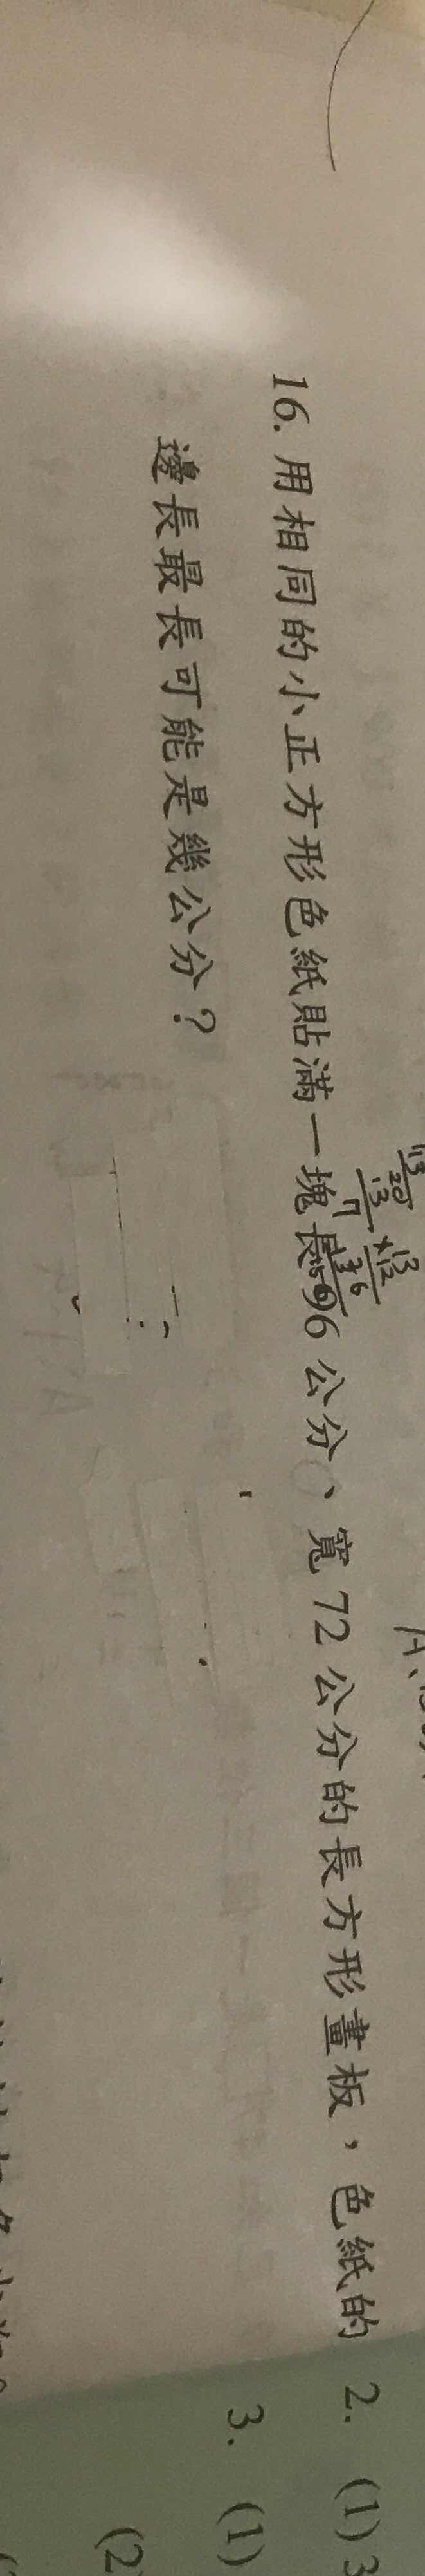 16. 用相同的小正方形色紙貼滿一塊長96公分、寬72公分的長方形畫板，色紙的
邊長最長可能是幾公分？
2. (1) 3
3. (1)
(2